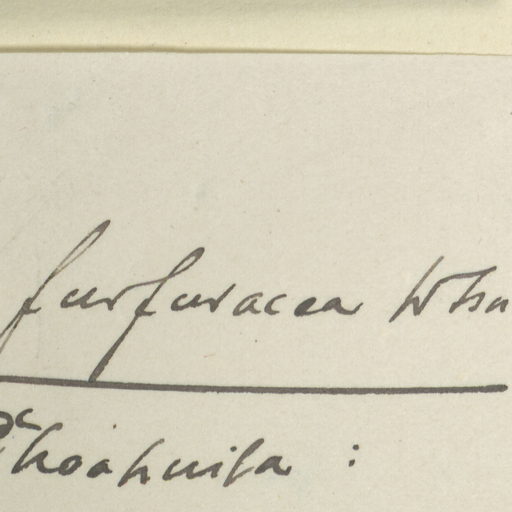 furfuracea Wats
Coahuila :